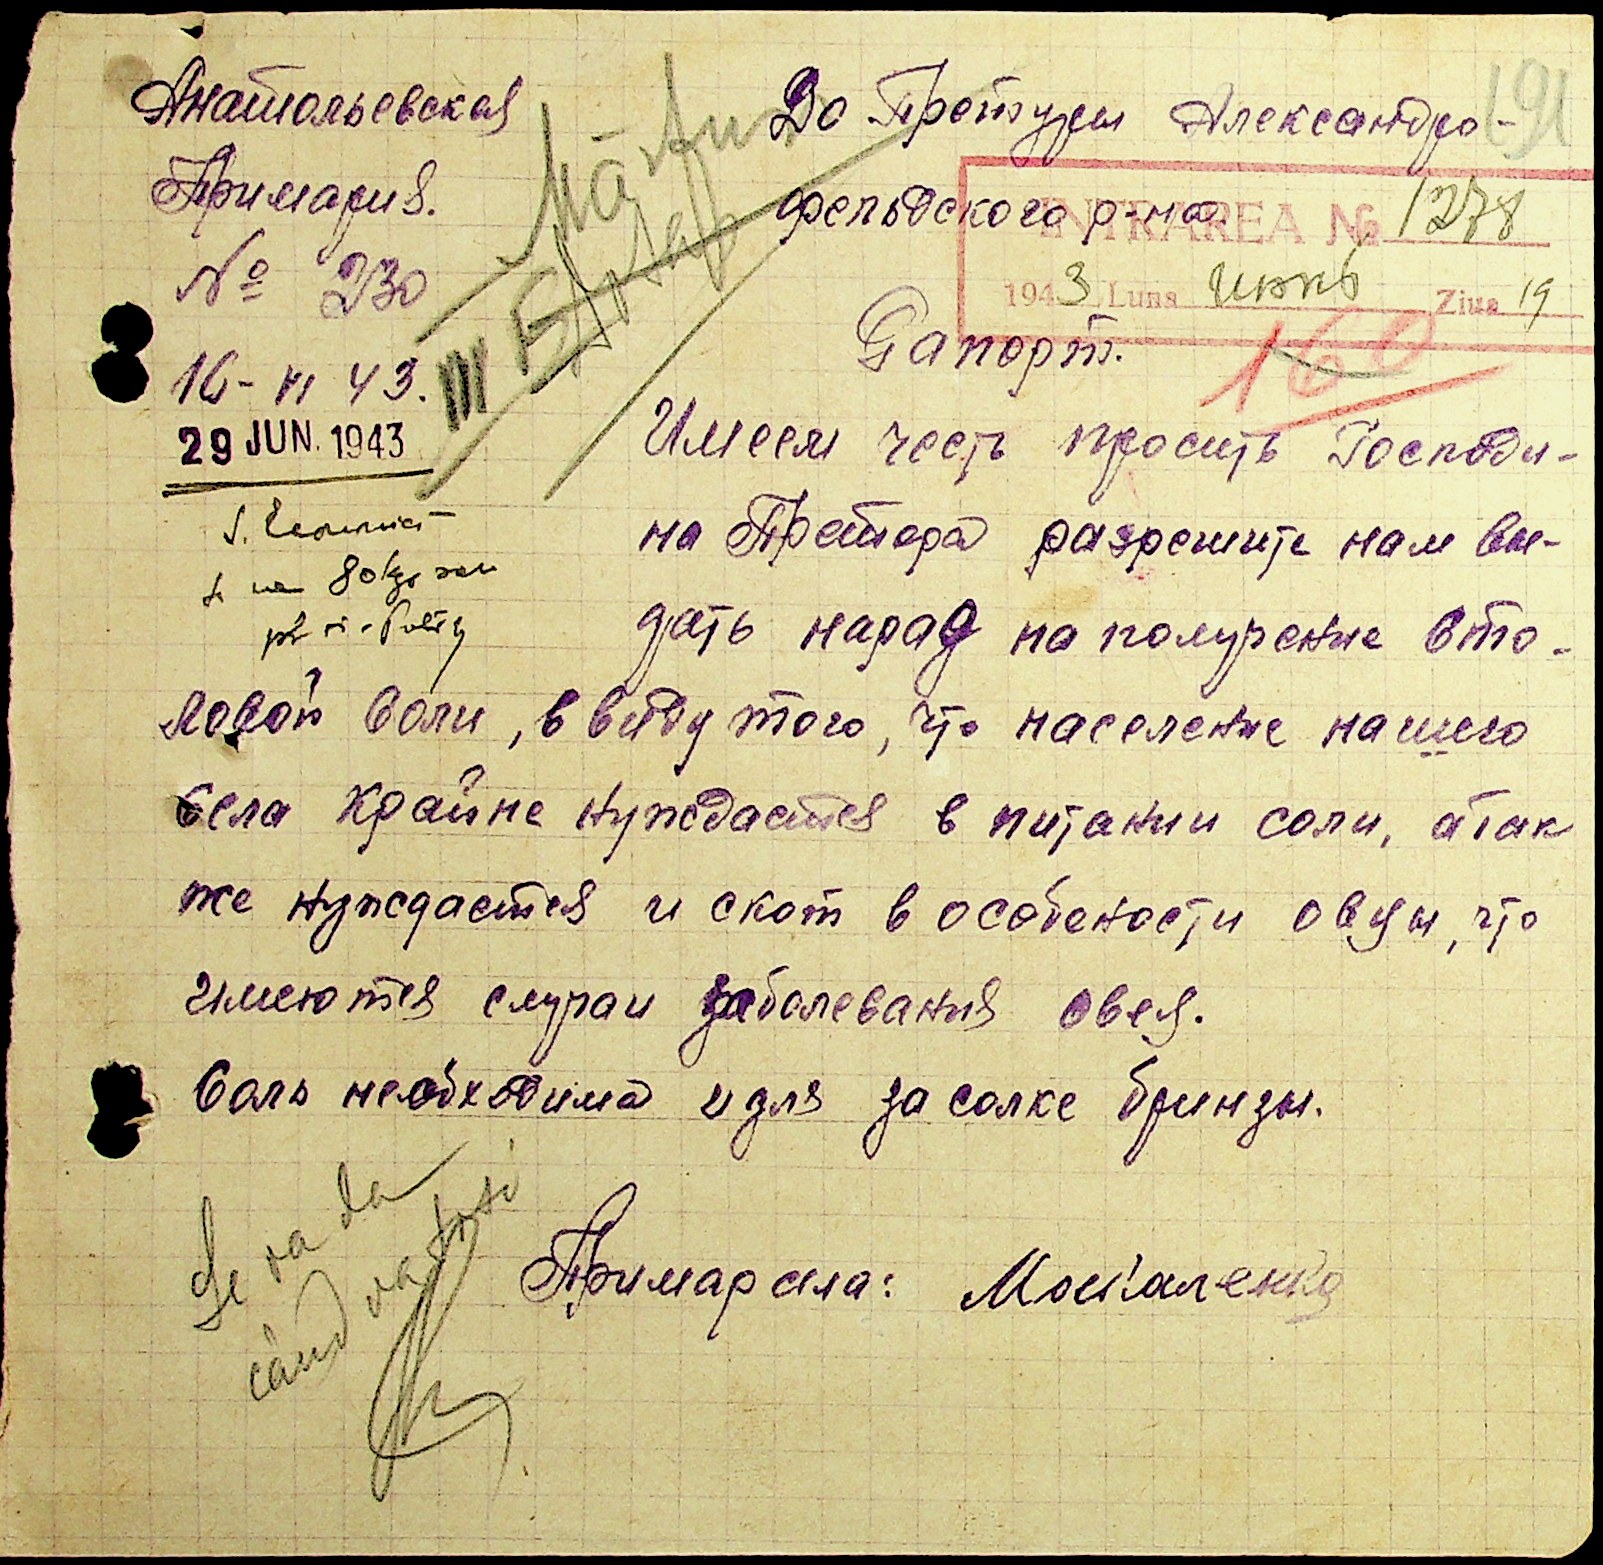 Анатольевская
Примария.
№ 230
16-VI 43.
29 JUN. 1943
До Претуры Александро-
фельдского р-на
191
INTRAREA № 1278
1943 Luna июнь Ziua 19
160
Рапорт.
III
Имеем честь просить Господи-
на Претора разрешить нам вы-
дать наряд на получение сто-
ловой соли, ввиду того, что население нашего
села крайне нуждается в питании соли, атак
же нуждается и скот в особености овцы, что
имеются случаи заболевания овец.
Соль необходима и для засолке брынзы.
80 kgr
Se va da
când va sosi
Примар села: Москаленко